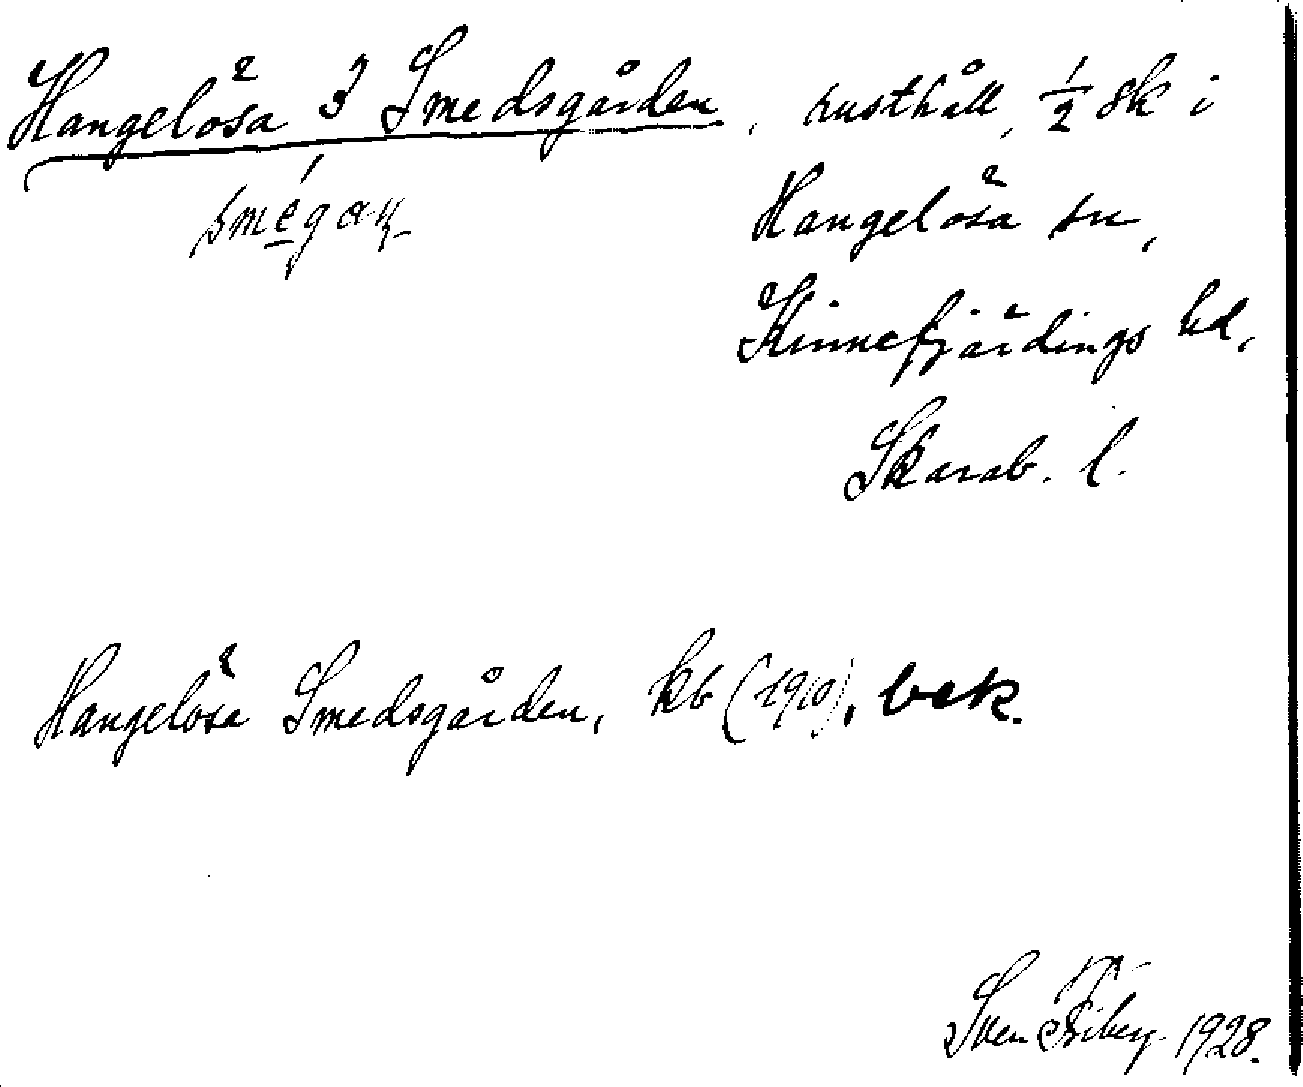 Hangelösa 3 Smedsgården, rusthåll, ½ sk i
Hangelösa sn,
Kinnefjärdings hd,
Skarab. l.
Hangelösa Smedsgården, kb (1910), bek.
Sven Friberg 1928.